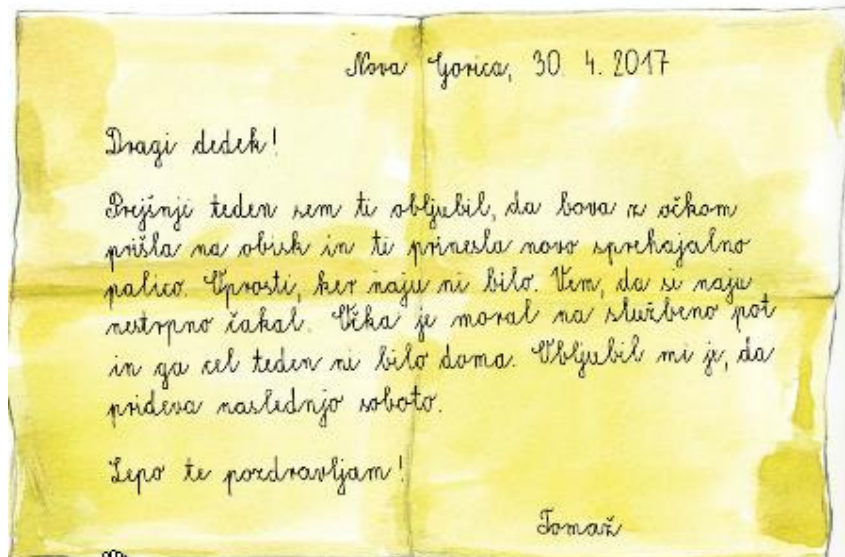 Nova Gorica, 30. 4. 2017
Dragi dedek!
Prejšnji teden sem ti obljubil, da bova z očkom
prišla na obisk in ti prinesla novo sprehajalno
palico. Oprosti, ker naju ni bilo. Vem, da si naju
nestrpno čakal. Očka je moral na službeno pot
in ga cel teden ni bilo doma. Obljubil mi je, da
prideva naslednjo soboto.
Lepo te pozdravljam!
Tomaž